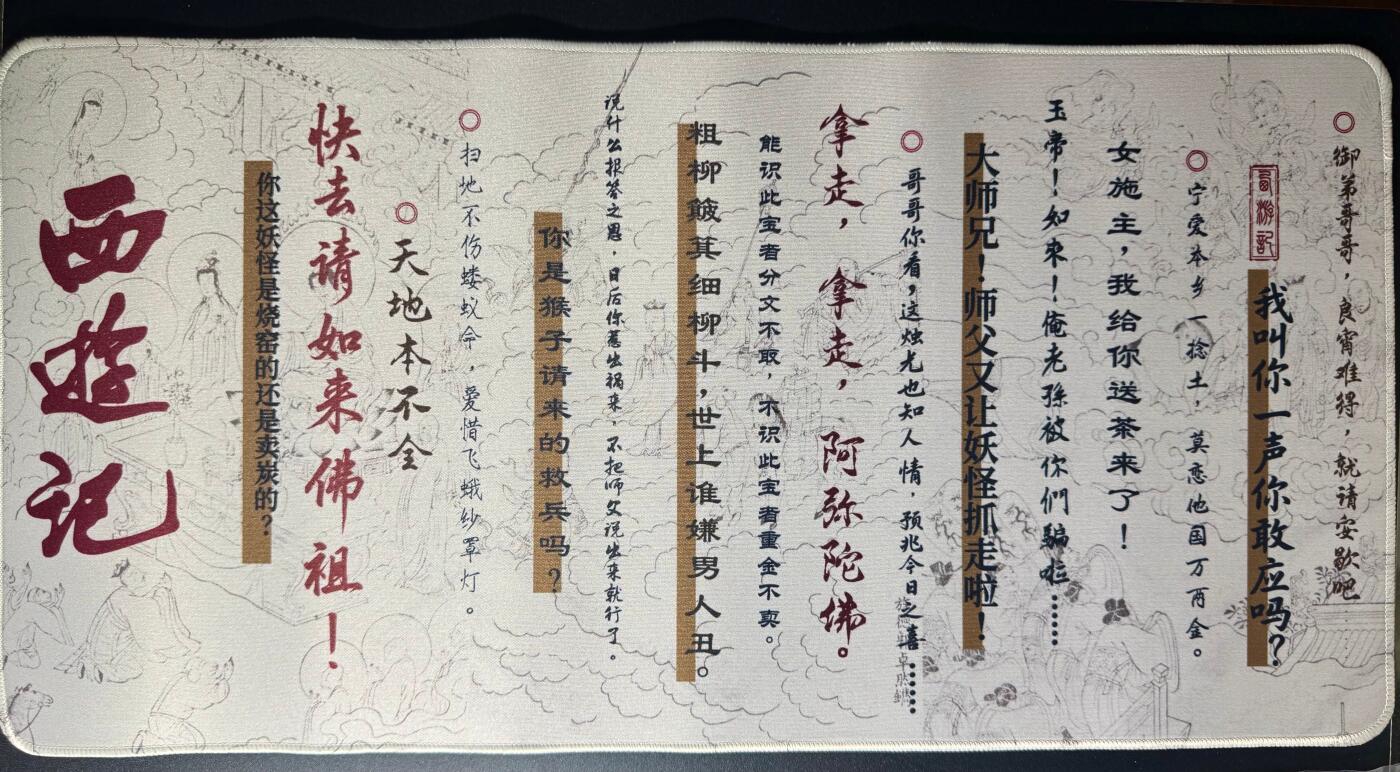 御弟哥哥，良宵难得，就请安歇吧……
西游記
我叫你一声你敢应吗?
宁爱本乡一捻土，莫恋他国万两金。
女施主，我给你送茶来了！
玉帝！如来！俺老孫被你們騙啦……
大师兄！师父又让妖怪抓走啦！
哥哥你看，这烛光也知人情，预兆今日之喜……
拿走，拿走，阿弥陀佛。
能识此宝者分文不取，不识此宝者重金不卖。
粗柳簸箕细柳斗，世上谁嫌男人丑。
说什么报答之恩，日后你惹出祸来，不把师父说出来就行了。
你是猴子请来的救兵吗？
扫地不伤蝼蚁命，爱惜飞蛾纱罩灯。
天地本不全
快去请如来佛祖！
你这妖怪是烧窑的还是卖炭的？
西遊记